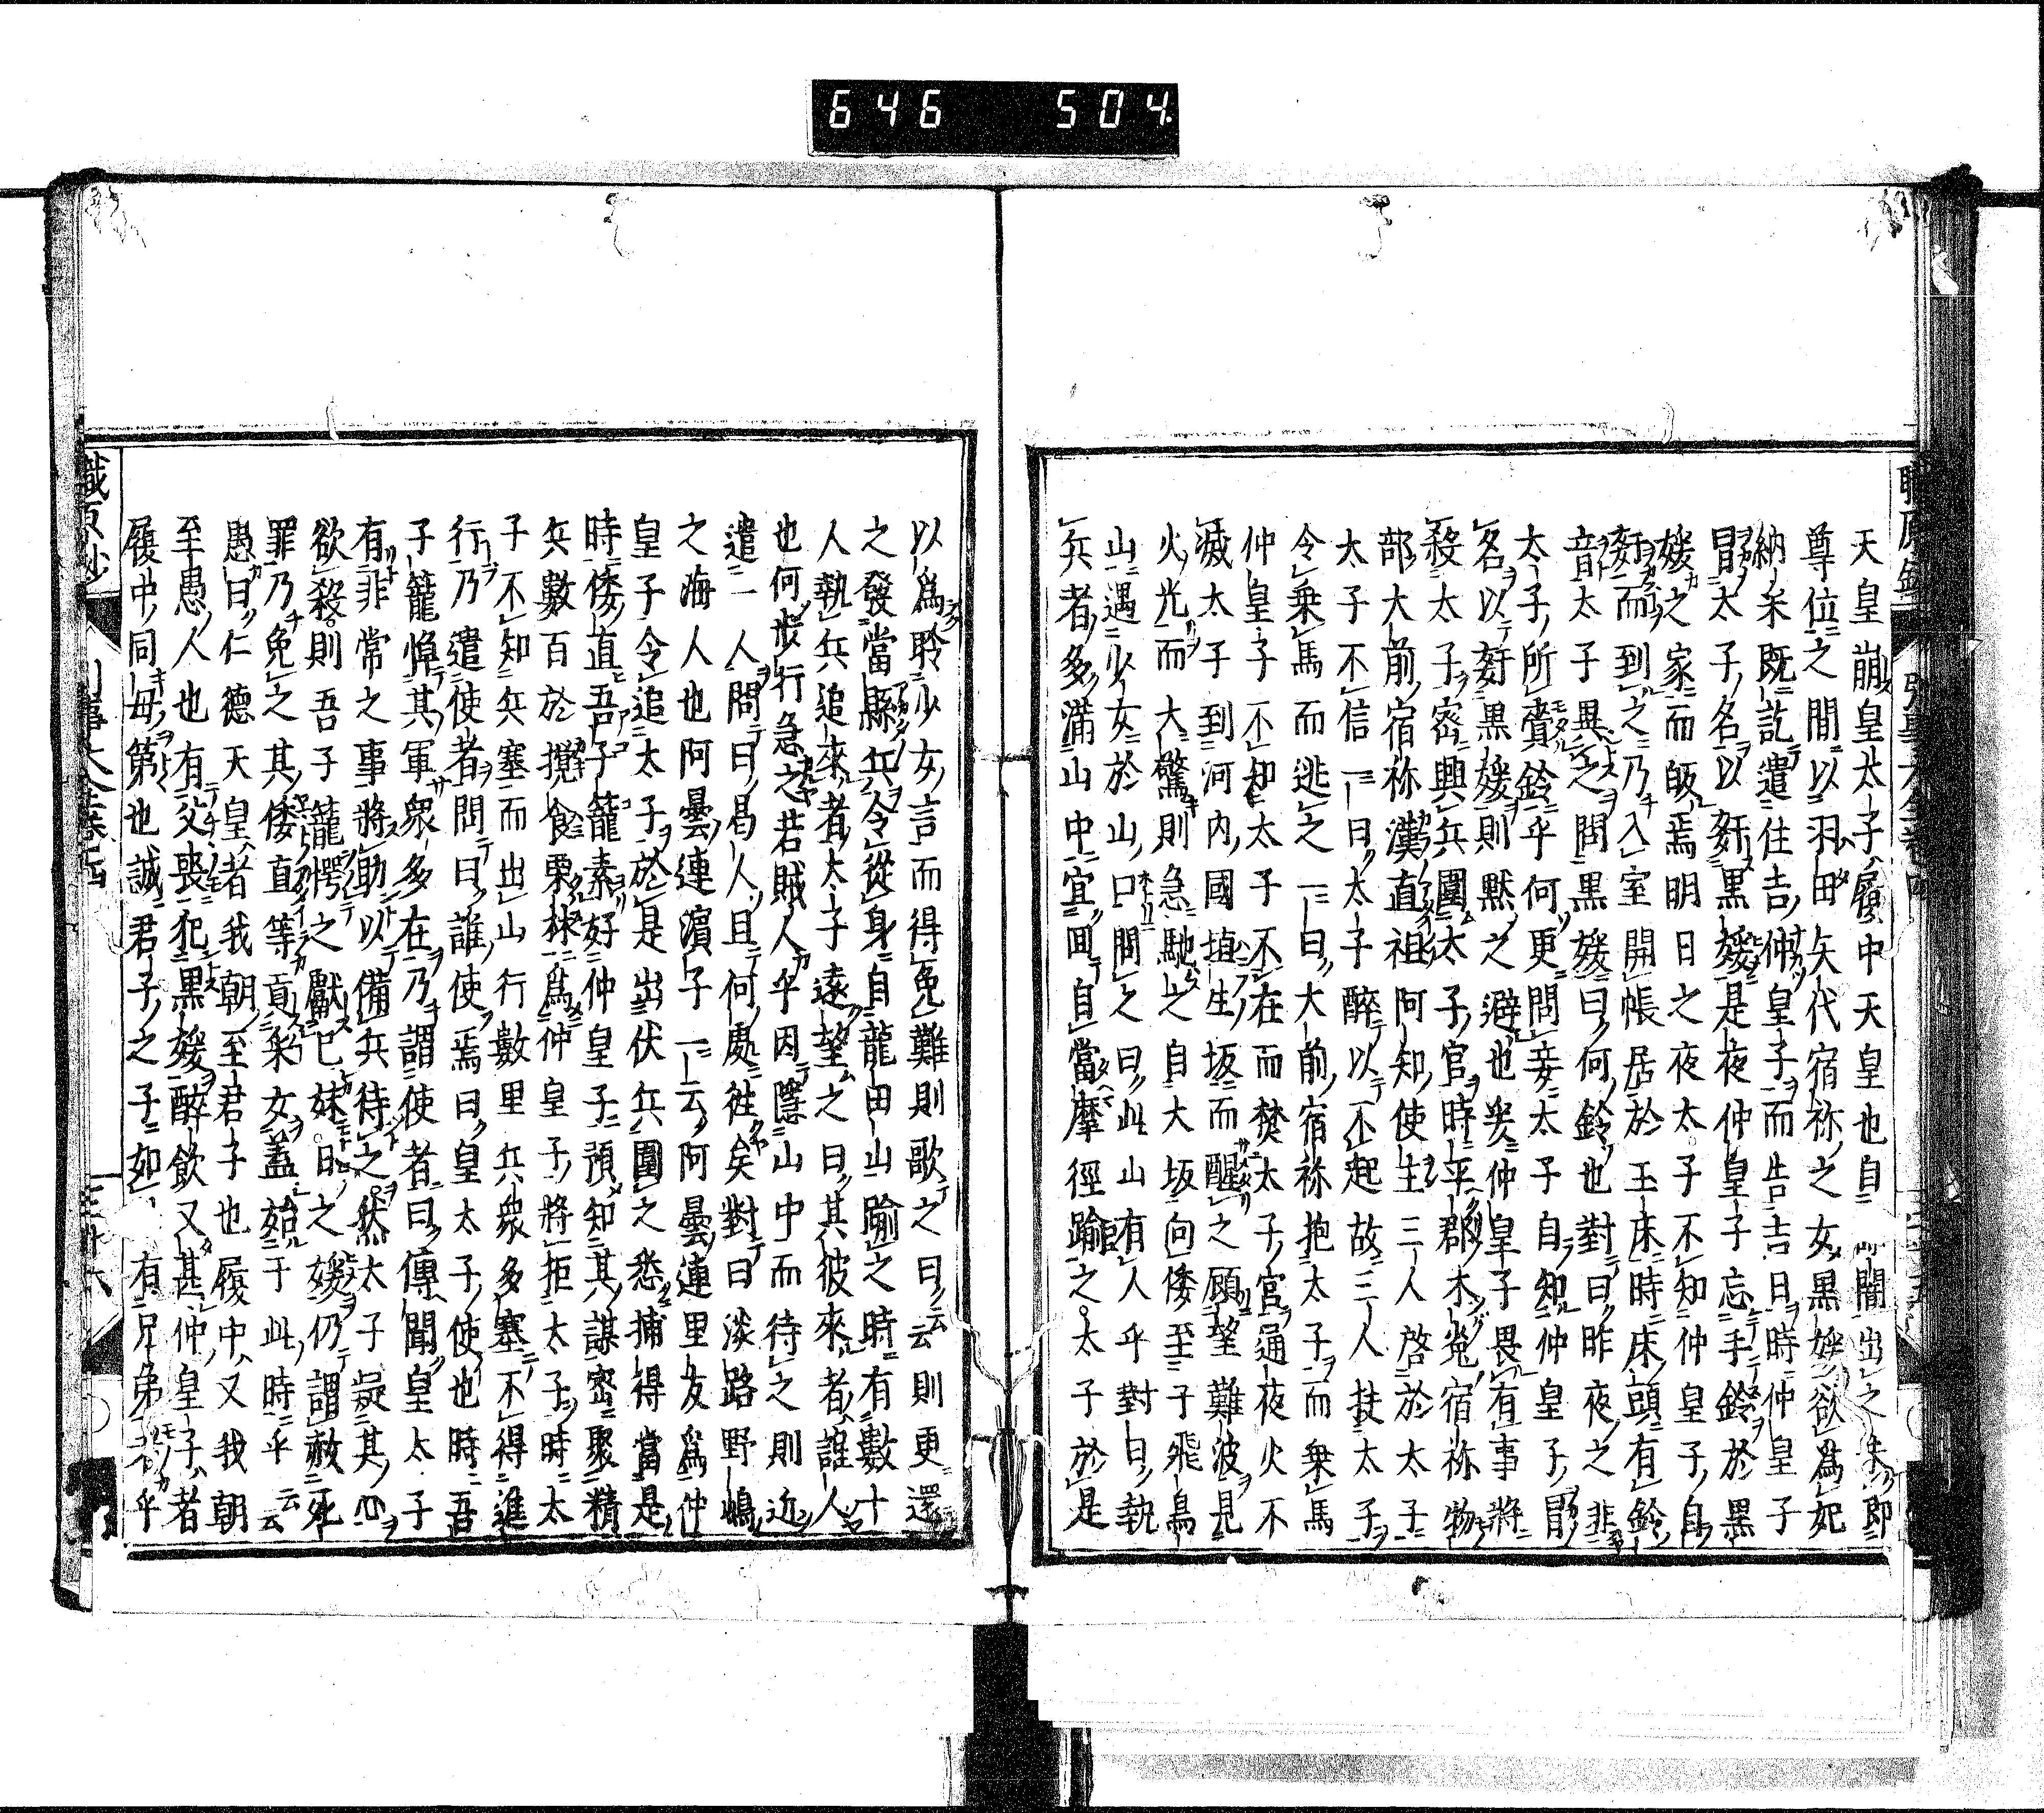 646 504
天皇崩皇太子履中天皇也自闇出之未即
尊位之間以羽田矢代宿祢之女黒媛欲爲妃
納采既訖遣住吉仲皇子而告吉日時仲皇子
冒太子名以姧黒媛是夜仲皇子忘手鈴於黒
媛之家而皈焉明日之夜太子不知仲皇子自
姧而到之乃入室開帳居於玉床時床頭有鈴
音太子異之問黒媛曰何鈴也對曰昨夜之非
太子所賷鈴乎何更問妾太子自知仲皇子冒
名以姧黒媛則黙之避也爰仲皇子畏有事將
殺太子密興兵圍太子宮時平郡木菟宿祢物
部大前宿祢漢直祖阿知使主三人啓於太子
太子不信一曰太子醉以不起故三人扶太子
令乗馬而逃之一曰大前宿祢抱太子而乗馬
仲皇子不知太子不在而焚太子宮通夜火不
滅太子到河内國埴生坂而醒之顧望難波見
火光而大驚則急馳之自大坂向倭至于飛鳥
山遇少女於山口問之曰此山有人乎對曰執
兵者多滿山中宜囬自當摩徑踰之太子於是
以爲聆少女言而得免難則歌之曰云云則更還
之發當縣兵令從身自龍田山踰之時有數十
人執兵追來者太子遠望之曰其彼來者誰人
也何步行急之若賊人乎因隱山中而待之則近
遣一人問曰曷人且何處徃矣對曰淡路野嶋
之海人也阿曇連濱子一云阿曇連黒友爲仲
皇子令追太子於是出伏兵圍之悉捕得當是
時倭直吾子籠素好仲皇子預知其謀密聚精
兵數百於攪食栗林爲仲皇子將拒太子時太
子不知兵塞而出山行數里兵衆多塞不得進
行乃遣使者問曰誰使焉曰皇太子使也時吾
子籠憚其軍衆多在乃謂使者曰傳聞皇太子
有非常之事將助以備兵待之然太子疑其心
欲殺則吾子籠愕之獻已妹日之媛仍謂赦死
罪乃免之其倭直等貢采女蓋始于此時乎云
愚曰仁德天皇者我朝至君子也履中又我朝
至愚人也有父喪犯黒媛醉飲又甚仲皇子者
履中同母第也誠君子之子如有兄弟乎